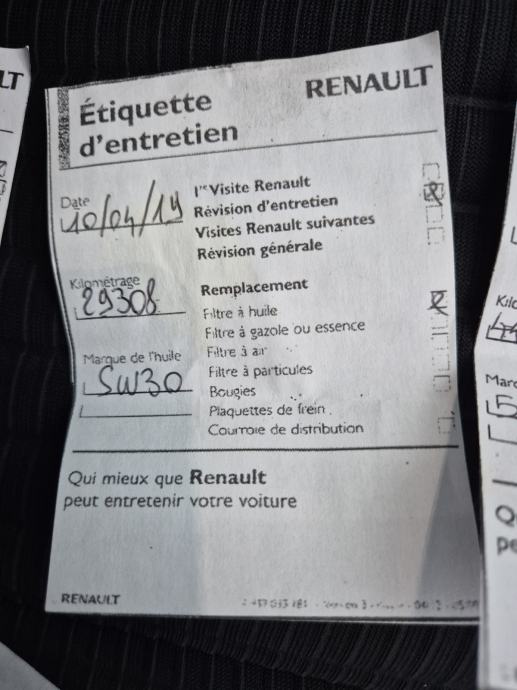 LT
RENAULT
Étiquette
d'entretien
1re Visite Renault
Révision d'entretien
Visites Renault suivantes
Révision générale
Date
10/04/19
Kilométrage
29308
Marque de l'huile
5W30
Remplacement
Filtre à huile
Filtre à gazole ou essence
Filtre à air
Filtre à particules
Bougies
Plaquettes de frein
Courroie de distribution
Qui mieux que Renault
peut entretenir votre voiture
RENAULT
Kilo
Marq
5
Q
pe